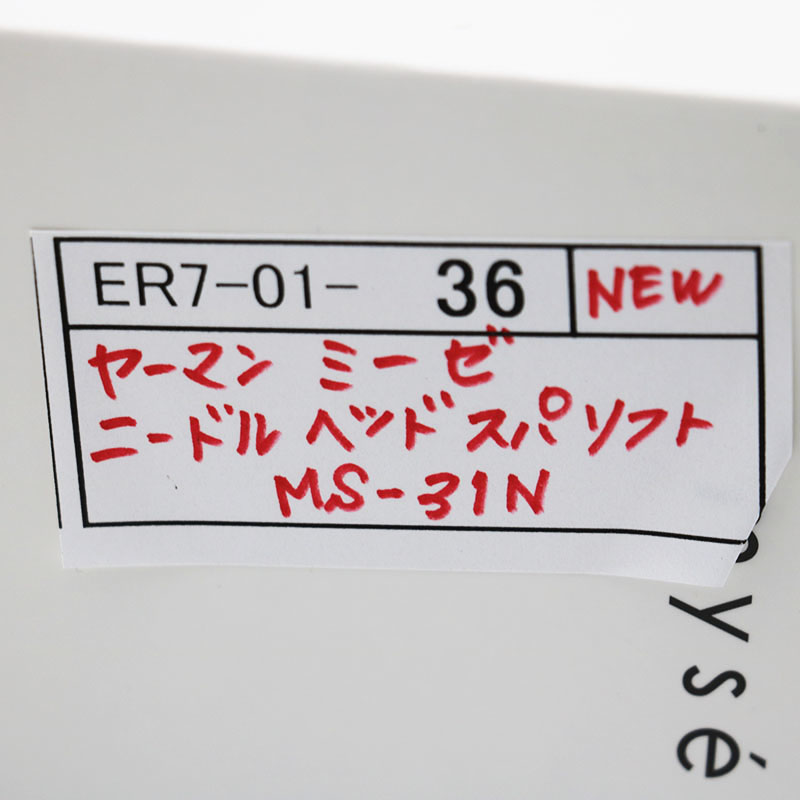 ER7-01- 36 NEW
ヤーマン ミーゼ
ニードル ヘッド スパ ソフト
MS-31N
ysé